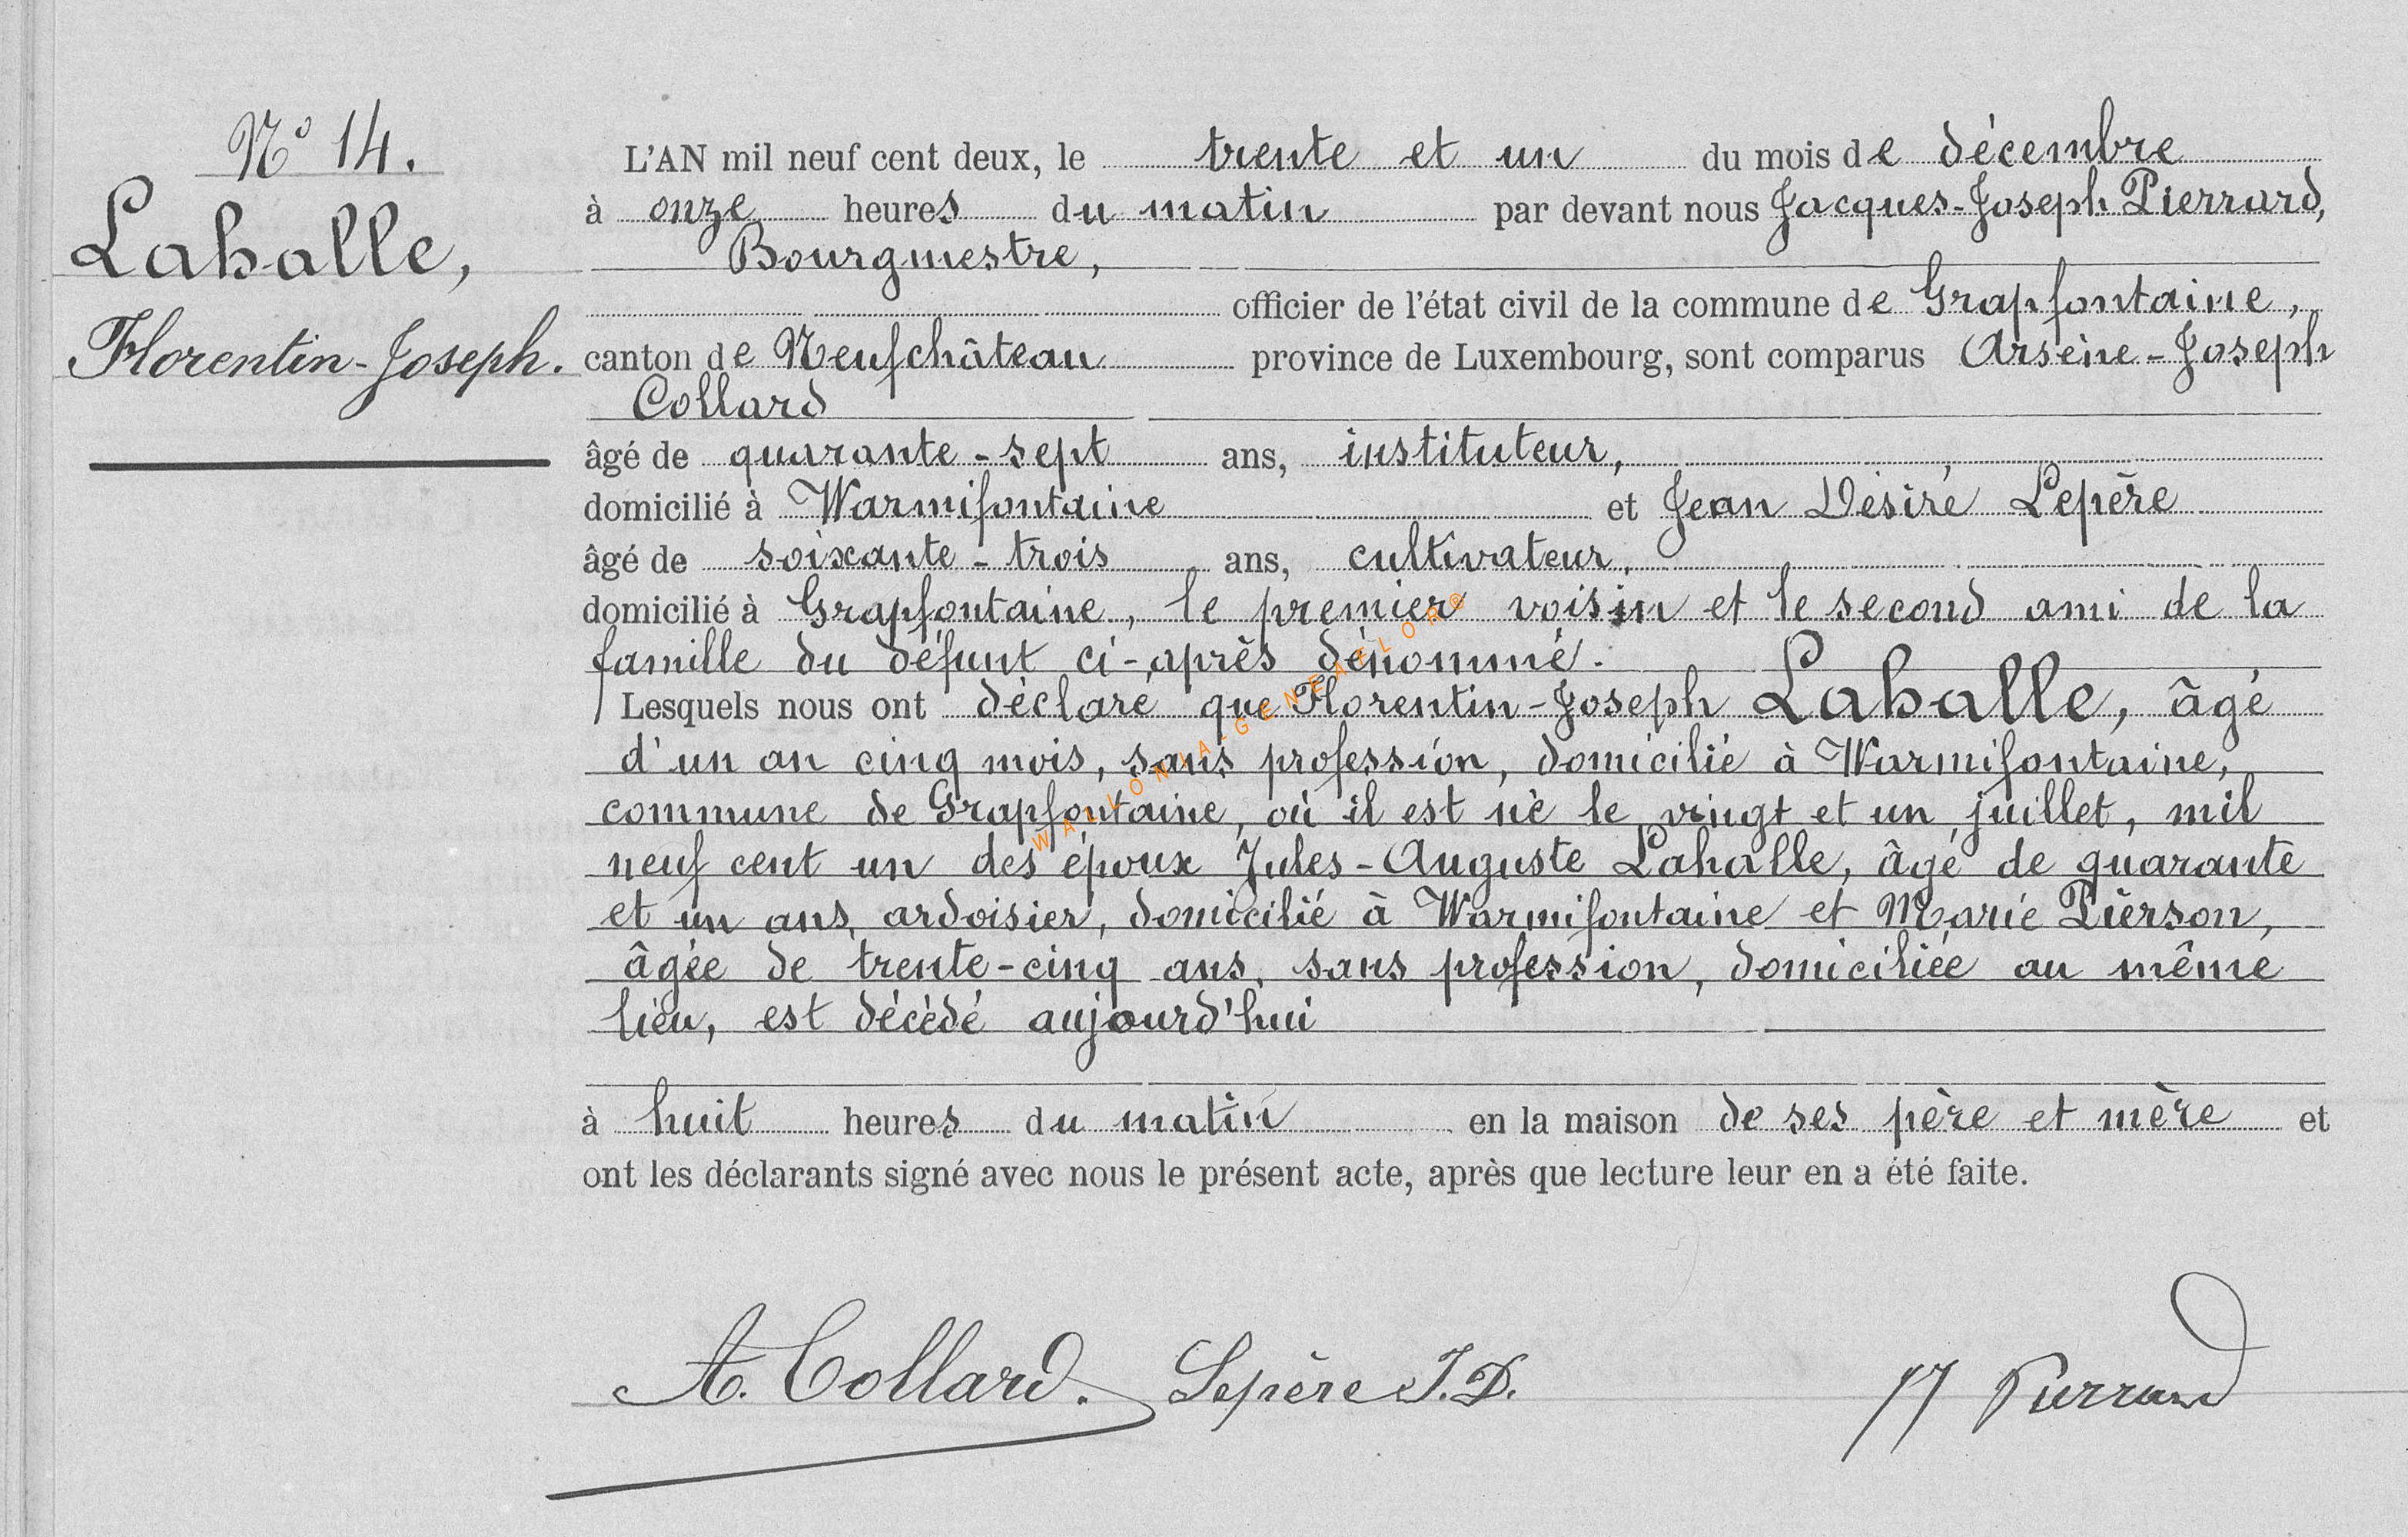 N° 14.
Lahalle,
Florentin-Joseph.
L'AN mil neuf cent deux, le trente et un du mois de décembre
à onze heures du matin par devant nous Jacques-Joseph Pierrard,
Bourgmestre,
officier de l'état civil de la commune de Grapfontaine,
canton de Neufchâteau province de Luxembourg, sont comparus Arsène-Joseph
Collard
âgé de quarante-sept ans, instituteur,
domicilié à Warmifontaine et Jean Désiré Lepère
âgé de soixante-trois ans, cultivateur,
domicilié à Grapfontaine, le premier voisin et le second ami de la
famille du défunt ci-après dénommé.
Lesquels nous ont déclaré que Florentin-Joseph Lahalle, âgé
d'un an cinq mois, sans profession, domicilié à Warmifontaine,
commune de Grapfontaine, où il est né le vingt et un juillet, mil
neuf cent un des époux Jules-Auguste Lahalle, âgé de quarante
et un ans, ardoisier, domicilié à Warmifontaine et Marie Pierson,
âgée de trente-cinq ans, sans profession, domiciliée au même
lieu, est décédé aujourd'hui
à huit heures du matin en la maison de ses père et mère et
ont les déclarants signé avec nous le présent acte, après que lecture leur en a été faite.
A. Collard. Lepère J.D. JJ Pierrard
WALLONIA-GENEALOR®